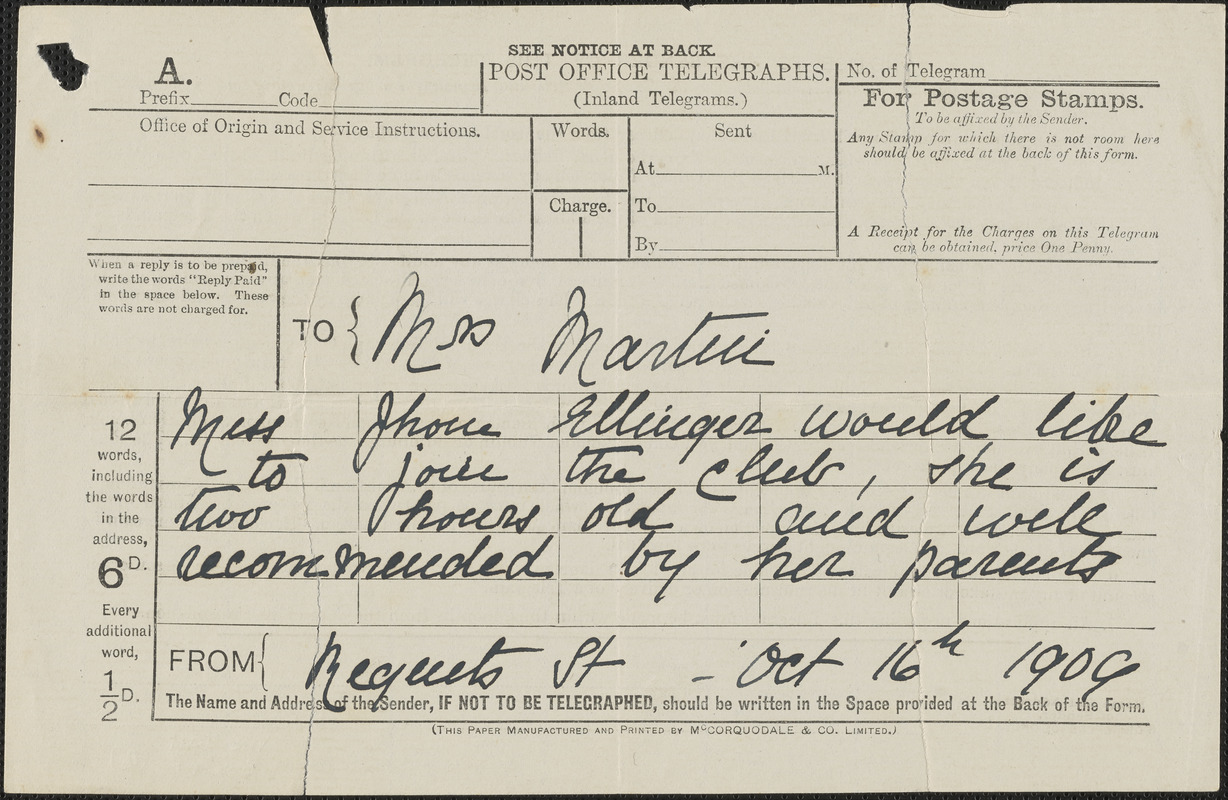 SEE NOTICE AT BACK.
A.
Prefix Code
POST OFFICE TELEGRAPHS.
(Inland Telegrams.)
No. of Telegram
Office of Origin and Service Instructions.
Words.
Charge.
Sent
At M.
To
By
For Postage Stamps.
To be affixed by the Sender.
Any Stamp for which there is not room here
should be affixed at the back of this form.
A Receipt for the Charges on this Telegram
can be obtained, price One Penny.
When a reply is to be prepaid,
write the words "Reply Paid"
in the space below. These
words are not charged for.
TO { Mrs Martin
12
words,
including
the words
in the
address,
6D.
Every
additional
word,
1/2 D.
Miss Ellinger would like
to join the club, she is
two hours old and well
recommended by her parents
FROM { Regents St - Oct 16th 1909
The Name and Address of the Sender, IF NOT TO BE TELEGRAPHED, should be written in the Space provided at the Back of the Form.
(THIS PAPER MANUFACTURED AND PRINTED BY McCORQUODALE & CO. LIMITED.)